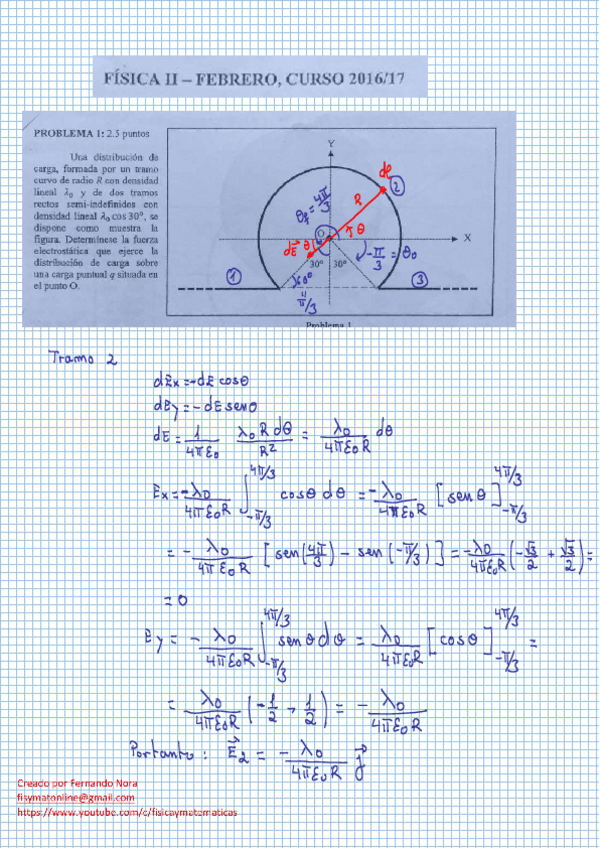 FÍSICA II – FEBRERO, CURSO 2016/17
PROBLEMA 1: 2.5 puntos
Una distribución de
carga, formada por un tramo
curvo de radio R con densidad
lineal λ₀ y de dos tramos
rectos semi-indefinidos con
densidad lineal λ₀ cos 30°, se
dispone como muestra la
figura. Determínese la fuerza
electrostática que ejerce la
distribución de carga sobre
una carga puntual q situada en
el punto O.
Y
dl
2
R
θf = 4π/3
θ
O
X
dE⃗ θ
-π/3 = θ₀
30° 30°
1
60°
π/3
3
Problema 1
Tramo 2
dEx = -dE cosθ
dEy = -dE senθ
dE = 1/4πε₀ λ₀ R dθ/R² = λ₀/4πε₀R dθ
Ex = -λ₀/4πε₀R ∫_{-π/3}^{4π/3} cosθ dθ = -λ₀/4πε₀R [senθ]_{-π/3}^{4π/3}
= -λ₀/4πε₀R [sen(4π/3) - sen(-π/3)] = -λ₀/4πε₀R (-√3/2 + √3/2) =
= 0
Ey = -λ₀/4πε₀R ∫_{-π/3}^{4π/3} senθ dθ = λ₀/4πε₀R [cosθ]_{-π/3}^{4π/3} =
= λ₀/4πε₀R (-1/2 - 1/2) = -λ₀/4πε₀R
Por tanto: E⃗₂ = -λ₀/4πε₀R j⃗
Creado por Fernando Nora
fisymatonline@gmail.com
https://www.youtube.com/c/fisicaymatematicas